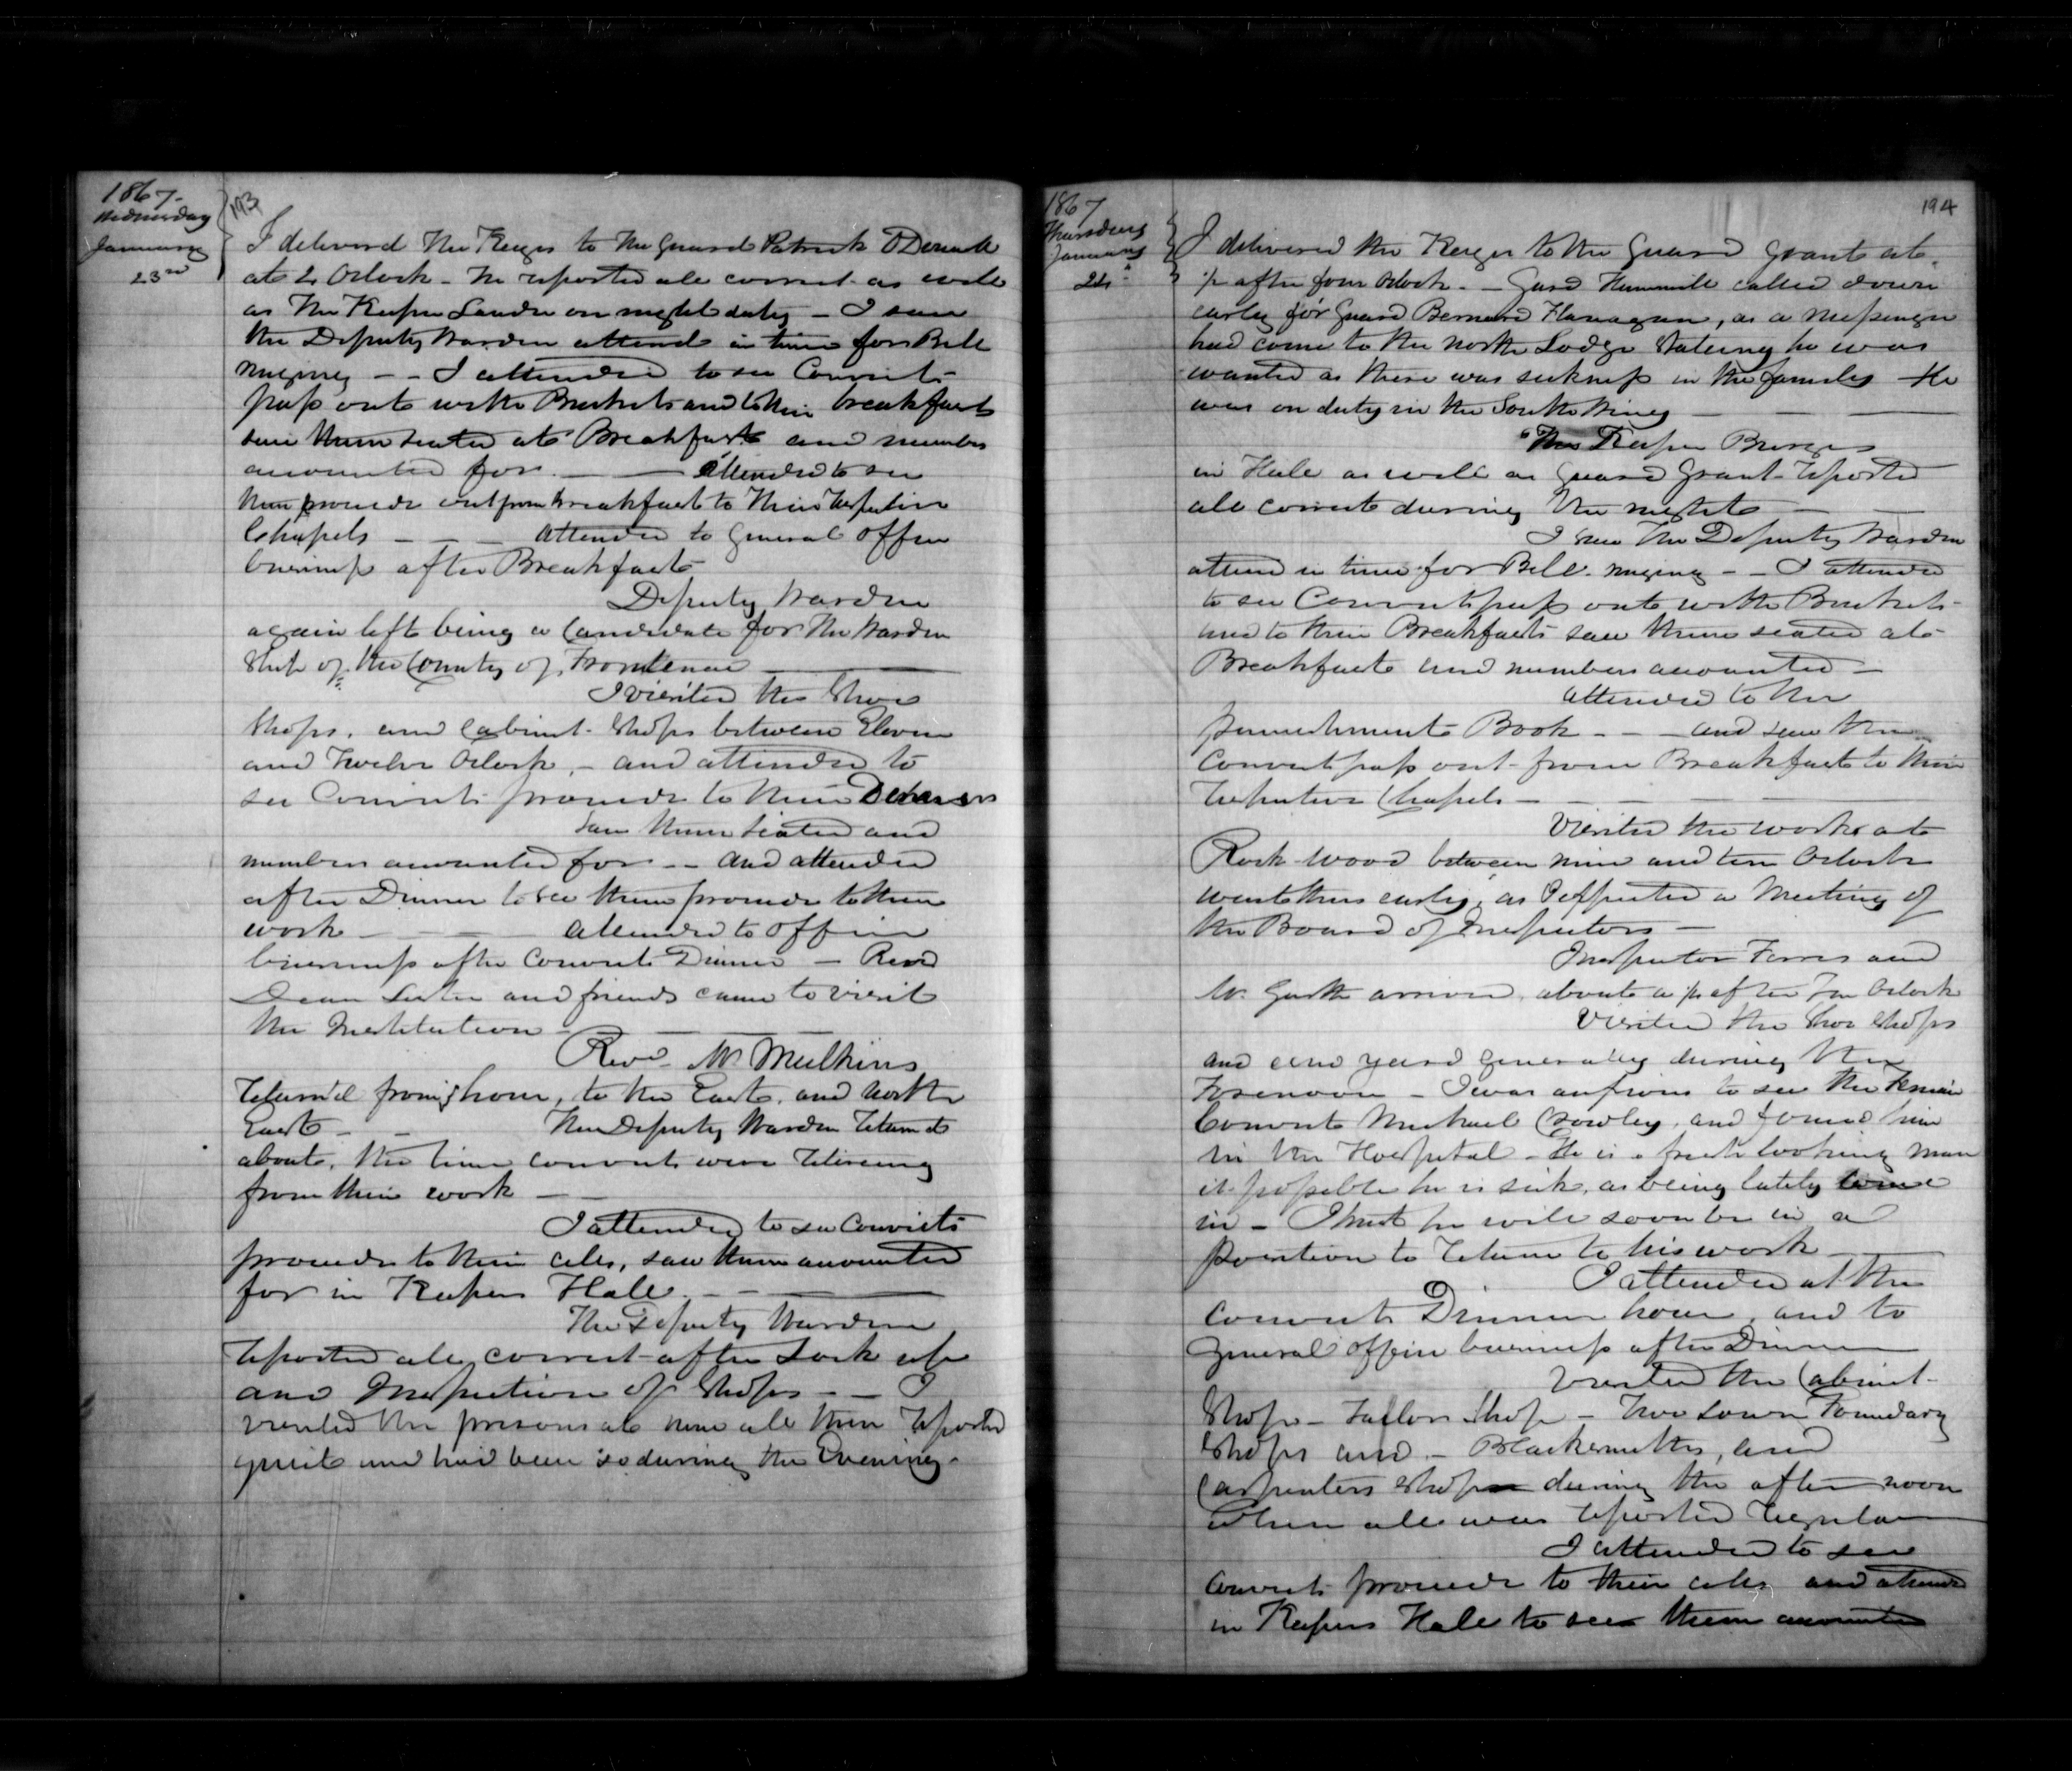 1867.
Wednesday
January
23rd
193
I delivered the Keys to the Guard Patrick
at Oclock - he reported all correct as well
as the Keeper on night duty - I saw
the Deputy Warden attend in time for Bell
ringing - - I attended to see Convicts
pass out with Buckets and to their breakfast
saw them seated at Breakfast and number
accounted for. - - attended to see
them proceed out from breakfast to their respective
Chapels - - - attended to general office
business after Breakfast
Deputy Warden
again left being a Candidate for the Warden
Ship of the County of Frontenac
I visited the Shoe
Shops, and Cabinet Shops between Eleven
and Twelve Oclock, - and attended to
see Convicts proceed to their Dinners
saw them seated and
numbers accounted for - - and attended
after Dinner to see them proceed to their
work - - - attended to office
business after Convicts Dinner - Revd
Dean and friends came to visit
the Institution -
Revd Mr Mulkins
Returnd from, to the East, and North
East - - The Deputy Warden returned
about, the time convicts were retireing
from their work - -
I attended to see Convicts
proceed to their cells, saw them accounted
for in Keepers Hall. - -
The Deputy Warden
reported all correct after Lock up
and Inspection of Shops - - I
visited the prison at nine all then reported
quiet and had been so during the Evening.
1867
Thursday
January
24
194
I delivered the Keys to the Guard Grant at
½ after four Oclock. - Gard called down
early for Guard Bernard Flanagan, as a messenger
had come to the North Lodge stateing he was
wanted as there was sickness in the family He
was on duty in the South Wing
The Keeper
in Hall as well as Guard Grant reported
all correct during the night
I saw the Deputy Warden
attend in time for Bell ringing - - I attended
to see Convicts pass out with Buckets
and to their Breakfasts saw them seated at
Breakfast and numbers accounted -
attended to the
punishment Book - - - and saw the
Convicts pass out from Breakfast to their
respective Chapels -
Visited the works at
Rock wood between nine and ten Oclock
went there early, as I expected a Meeting of
the Board of Inspectors -
Inspector Ferres and
Mr. arrived, about a ¼ after Ten Oclock
Visited the Shoe Shops
and and yard generally during the
Forenoon - I was anxious to see the Fenian
Convict Michael Crowley, and found him
in the Hospital - He is a looking man
it possible he is sick, as being lately come
in - I trust he will soon be in a
position to return to his work
I attended at the
convicts Dinner hour, and to
General office business after Dinner
Visited the Cabinet
Shop - Tailors Shop - Foundary
Shops and - Blacksmiths, and
Carpenters Shops during the after noon
when all was reported regular
I attended to see
Convicts proceed to their cells and attend
in Keepers Hall to see them accounted